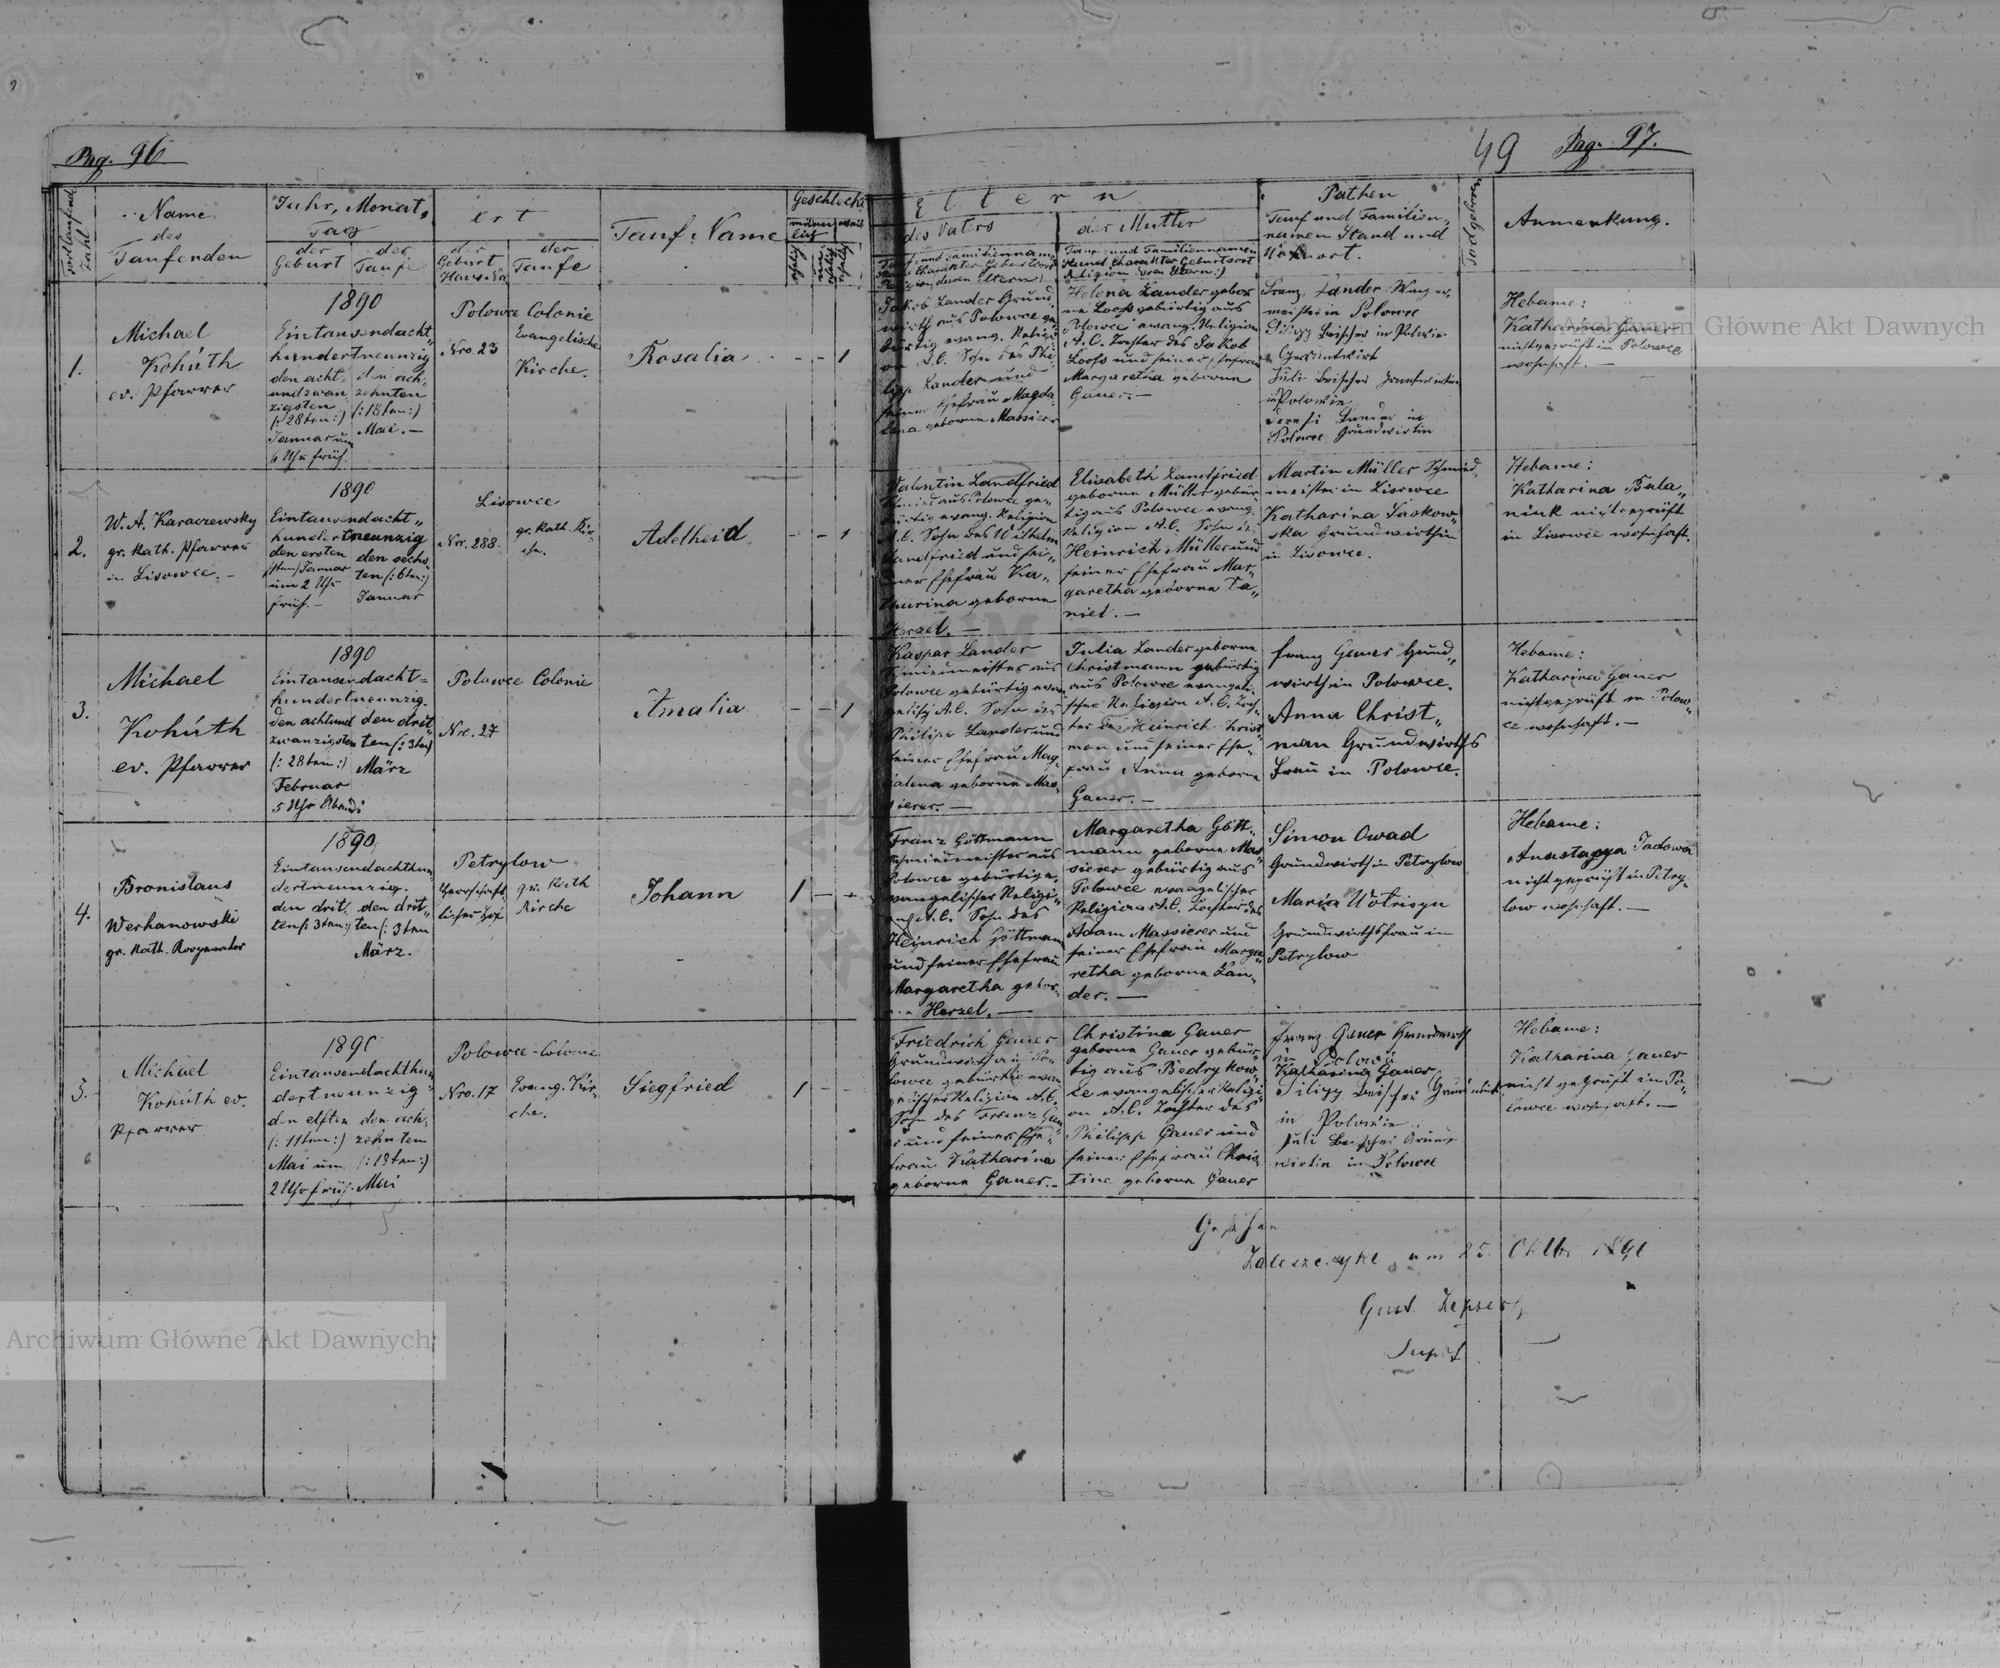 Pag. 96
49 Pag. 97.
fortlaufende Zahl
Name
des
Taufenden
Jahr, Monat,
Tag
der Geburt
der Taufe
Ort
der Geburt Haus-Nro
der Taufe
Tauf-Name
Geschlecht
männlich
weiblich
Eltern
des Vaters
der Mutter
Tauf und Familiennamen
Religion deren Eltern:)
Pathen
Tauf und Familien-
namen Stand und
Todgeboren
Anmerkung.
1.
Michael
Kohúth
ev. Pfarrer
1890
Eintausendacht-
hundertneunzig
den acht-
undzwan
zigsten
(:28ten:)
Januar um
6 Uhr früh.
den ach-
zehnten
(:18ten:)
Mai.—
Polowce Colonie
Nro. 23
Evangelische
Kirche.
Rosalia
- - 1
Jakob Lander Grund-
wirth aus Polowce ge-
bürtig evang. Religi-
on A.C. Sohn des Phi-
lipp Lander und
seiner Ehefrau Magda-
lena geborne Massierer
Helena Lander gebor
ne Loos gebürtig aus
Polowce evang. Religion
A.C. Tochter des Jakob
Loos und seiner Ehefrau
Margaretha geborne
Gauer.—
Franz Lander
meister in Polowce
Grundwirth
in Polowce
Polowce Grundwirtin
Hebame:
Katharina Gauer
nichtgeprüft in Polowce
wohnhaft.—
2.
W. A. Karaczewsky
gr. kath. Pfarrer
in Lisowce.—
1890
Eintausendacht-
hundertneunzig
den ersten
Januar
um 2 Uhr
früh.—
den sechs-
ten (:6ten:)
Januar
Lisowce
Nro. 288.
gr. kath. Kir-
che.
Adelheid
- - 1
Valentin Landfried
Schmied aus Polowce ge-
bürtig evang. Religion
A.C. Sohn des Wilhelm
Landfried und sei-
ner Ehefrau Ka-
tharina geborne
Herzel.—
Elisabeth Landfried
geborne Müller gebür-
tig aus Polowce evang.
Religion A.C.
Heinrich Müller und
seiner Ehefrau Mar-
garetha geborne Da-
niel.—
Martin Müller Schmied-
meister in Lisowce
Katharina Laskow-
ska Grundwirthin
in Lisowce.
Hebame:
Katharina Bala-
niuk nichtgeprüft
in Lisowce wohnhaft.
3.
Michael
Kohúth
ev. Pfarrer
1890
Eintausendacht-
hundertneunzig
den achtund
zwanzigsten
(:28ten:)
Februar
5 Uhr Abends
den drit-
ten (:3ten:)
März
Polowce Colonie
Nro. 27
Amalia
- - 1
Kaspar Lander
Schmiedmeister aus
Polowce gebürtig evan-
gelisch A.C. Sohn des
Philipp Lander und
seiner Ehefrau Mag-
dalena geborne Mas-
sierer.—
Julia Lander geborne
Christmann gebürtig
aus Polowce evangeli-
scher Religion A.C. Toch-
ter des Heinrich Christ-
man und seiner Ehe-
frau Anna geborne
Gauer.—
Franz Gauer Grund-
wirth in Polowce.
Anna Christ-
man Grundwirths
Frau in Polowce.
Hebame:
Katharina Gauer
nichtgeprüft in Polow-
ce wohnhaft.—
4.
Bronislaus
Werhanowski
gr. kath. Kooperator
1890
Eintausendachthun-
dertneunzig.
den drit-
ten (:3ten:)
den drit-
ten (:3ten
März.
Petrylow
Herrschaft-
licher Hof
gr. kath
Kirche
Johann
1 - -
Franz Göttmann
Schmiedmeister aus
Polowce gebürtig e-
vangelischer Religi-
on A.C. Sohn des
Heinrich Göttmann
und seiner Ehefrau
Margaretha gebor-
ne Herzel.—
Margaretha Gött-
mann geborne Mas-
sierer gebürtig aus
Polowce evangelischer
Religion A.C. Tochter des
Adam Massierer und
seiner Ehefrau Marga-
retha geborne Lan-
der.—
Simon Owad
Grundwirth in Petrylow
Maria Wotrisyn
Grundwirthsfrau in
Petrylow
Hebame:
Anastazya Tadowa
nicht geprüft in Petry-
low wohnhaft.—
5.
Michael
Kohúth ev.
Pfarrer
1890
Eintausendachthun-
dertneunzig
den elften
(:11ten:)
Mai um
2 Uhr früh.
den ach-
zehnten
(:18ten:)
Mai
Polowce-Colonie
Nro. 17
Evang. Kir-
che.
Siegfried
1 - -
Friedrich Gauer
Grundwirth aus Po-
lowce gebürtig evan-
gelischer Religion A.C.
Sohn des Franz Gau-
er und seiner Ehe-
frau Katharina
geborne Gauer.—
Christina Gauer
geborne Gauer gebür-
tig aus Bedrykow-
ce evangelischer Religi-
on A.C. Tochter des
Philipp Gauer und
seiner Ehefrau Chris-
tine geborne Gauer
Franz Gauer Grundwirth
in Polowce
Katharina Gauer
in Polowce
wirtin in Polowce
Hebame:
Katharina Gauer
nicht geprüft in Po-
lowce wohnhaft.—
Gesehen
Zaleszczyki, am 25. Oktbr. 1890
Archiwum Główne Akt Dawnych
Archiwum Główne Akt Dawnych